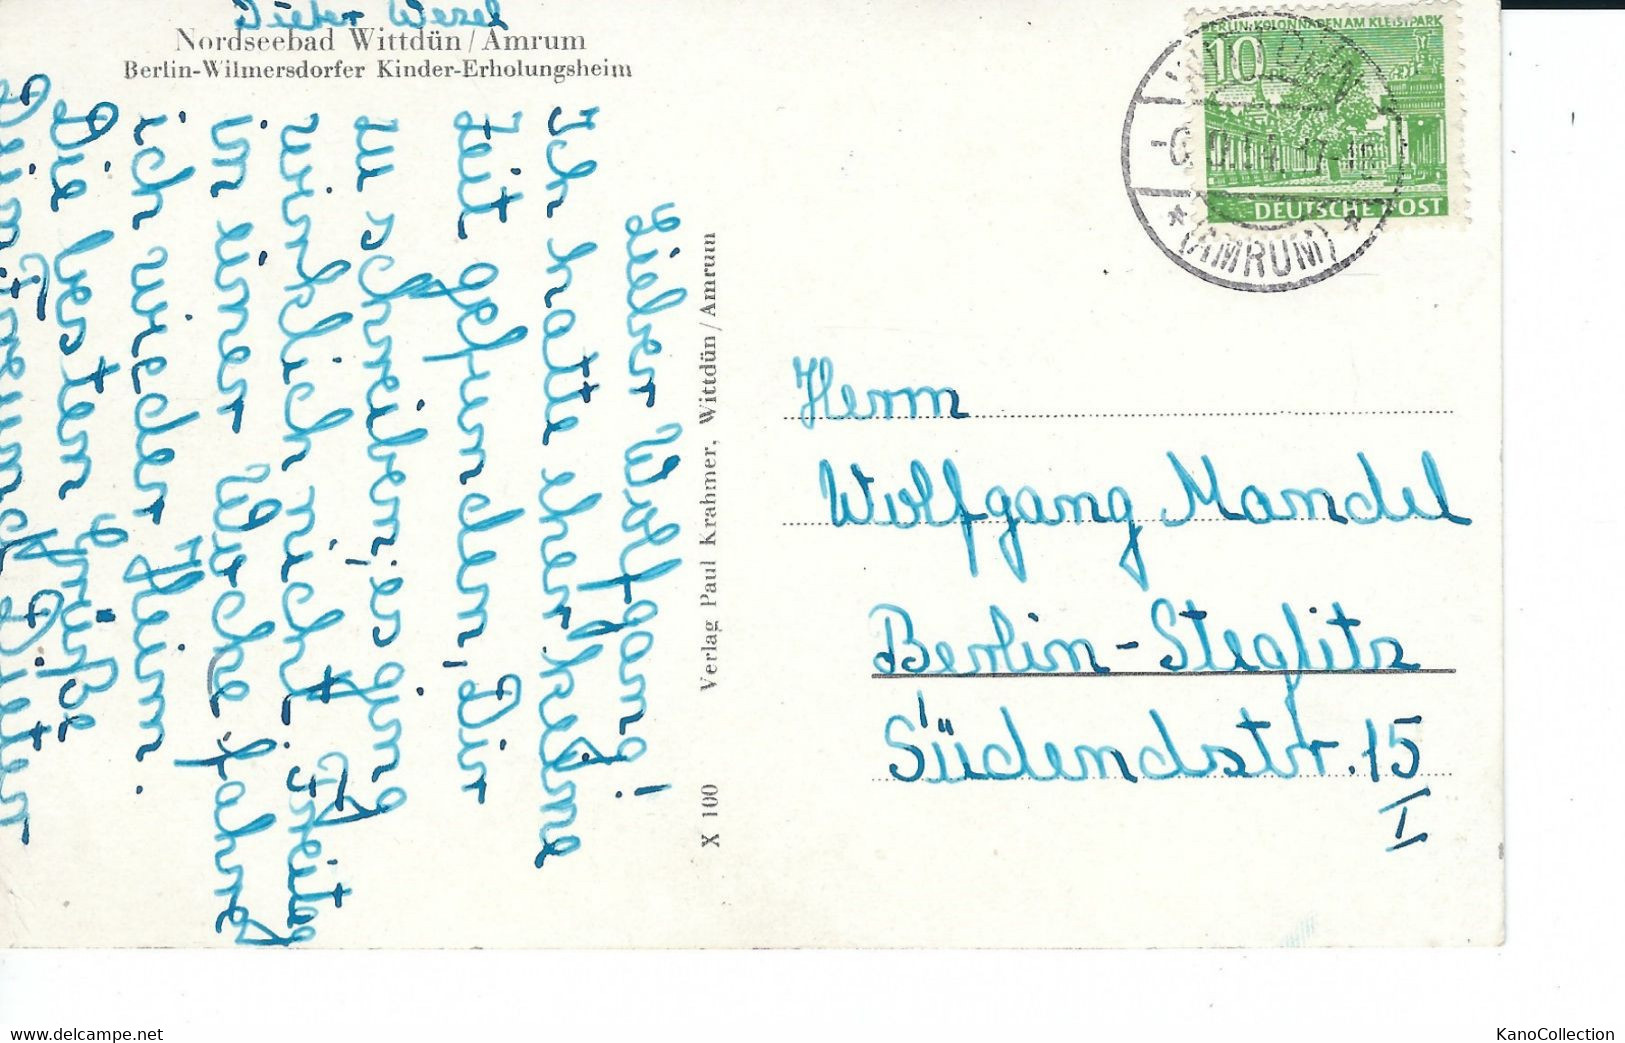 Dieter Wesel
Nordseebad Wittdün / Amrum
Berlin-Wilmersdorfer Kinder-Erholungsheim
Lieber Wolfgang!
Ich hatte eher keine
Zeit gefunden, Dir
zu schreiben; es ging
wirklich nicht. Freitag
in einer Woche fahre
ich wieder Heim.
Die besten Grüße
Dein Freund Dieter
Verlag Paul Krahmer, Wittdün / Amrum
X 100
BERLIN: KOLONNADEN AM KLEISTPARK
10
DEUTSCHE POST
(AMRUM)
Herrn
Wolfgang Mandel
Berlin-Steglitz
Südendstr. 15
I
deutschemark@delcampe.net
KanoCollection